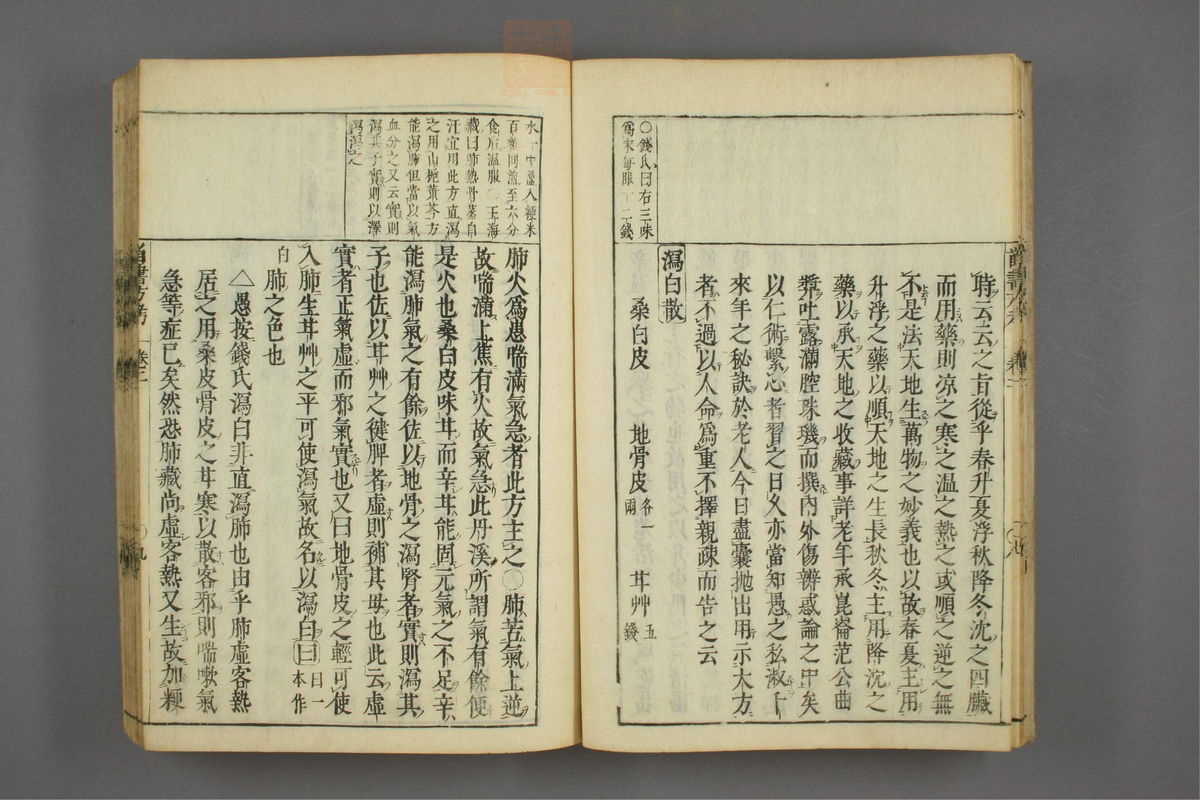 時云云之㫖從乎春升夏浮秋降冬沈之四臟
而用藥則凉之寒之温之熱之或順之逆之無
不是法天地生萬物之妙義也以故春夏主用
升浮之藥以順天地之生長秋冬主用降沈之
藥以承天地之收藏事詳老年承崑崙范公曲
獎吐露滿腔珠璣而撰內外傷辨惑論之中矣
以仁術繫心者習之日久亦當知愚之私淑
來年之秘訣於老人今日盡囊抛出用示大方
者不過以人命爲重不擇親疎而告之云
○錢氏曰右三味
爲末每服一二錢
瀉白散
桑白皮 地骨皮 各一兩 甘艸 五錢
水一中盞入粳米
百粒同煎至六分
食后温服○王海
藏曰肺熱骨蒸自
汗宜用此方直瀉
之用山梔黄芩方
能瀉肺但當以氣
血分之又云實則
瀉其子實則以澤
瀉瀉之
肺火爲患喘滿氣急者此方主之○肺苦氣上逆
故喘滿上焦有火故氣急此丹溪所謂氣有餘便
是火也桑白皮味甘而辛甘能固元氣之不足辛
能瀉肺氣之有餘佐以地骨之瀉腎者實則瀉其
子也佐以甘艸之健脾者虛則補其母也此云虛
實者正氣虛而邪氣實也又曰地骨皮之輕可使
入肺生甘艸之平可使瀉氣故名以瀉白曰 曰一本作白
肺之色也
△愚按錢氏瀉白非直瀉肺也由乎肺虛客熱
居之用桑皮骨皮之甘寒以散客邪則喘嗽氣
急等症已矣然恐肺藏尚虛客熱又生故加粳